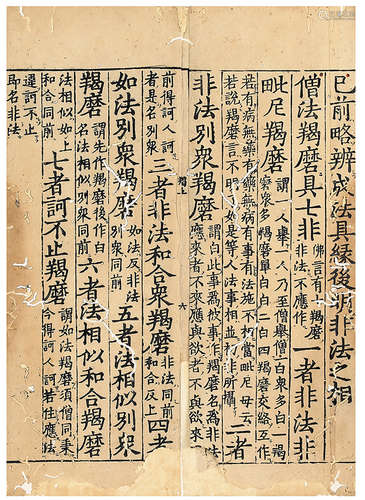 已前略辨成法具緣後明非法之相
僧法羯磨具七非
佛言有七羯磨
非法不應作
一者非法非
毗尼羯磨
謂一人舉一人乃至僧舉僧一白衆多一羯
磨衆多衆多羯磨單白白二白四羯磨交絡互作
若有病無藥有藥無病有事有法施不相當毗毋云
若說羯磨言不明如是等人法事相並非所攝
二者
非法別衆羯磨
謂白此事爲彼事作羯磨名爲非法
應來者不來應與欲者不與欲來
羯上
六
前得訶人訶
者是名別衆
三者非法和合衆羯磨
非法同前
和合反上
四者
如法別衆羯磨
如法反非法
別衆同前
五者法相似別衆
羯磨
謂先作羯磨後作白
名法相似別衆同前
六者法相似和合羯磨
法相似如上
和合同前
七者訶不止羯磨
謂如法羯磨須僧同秉
今得訶人訶若住應法
違訶不止
即名非法